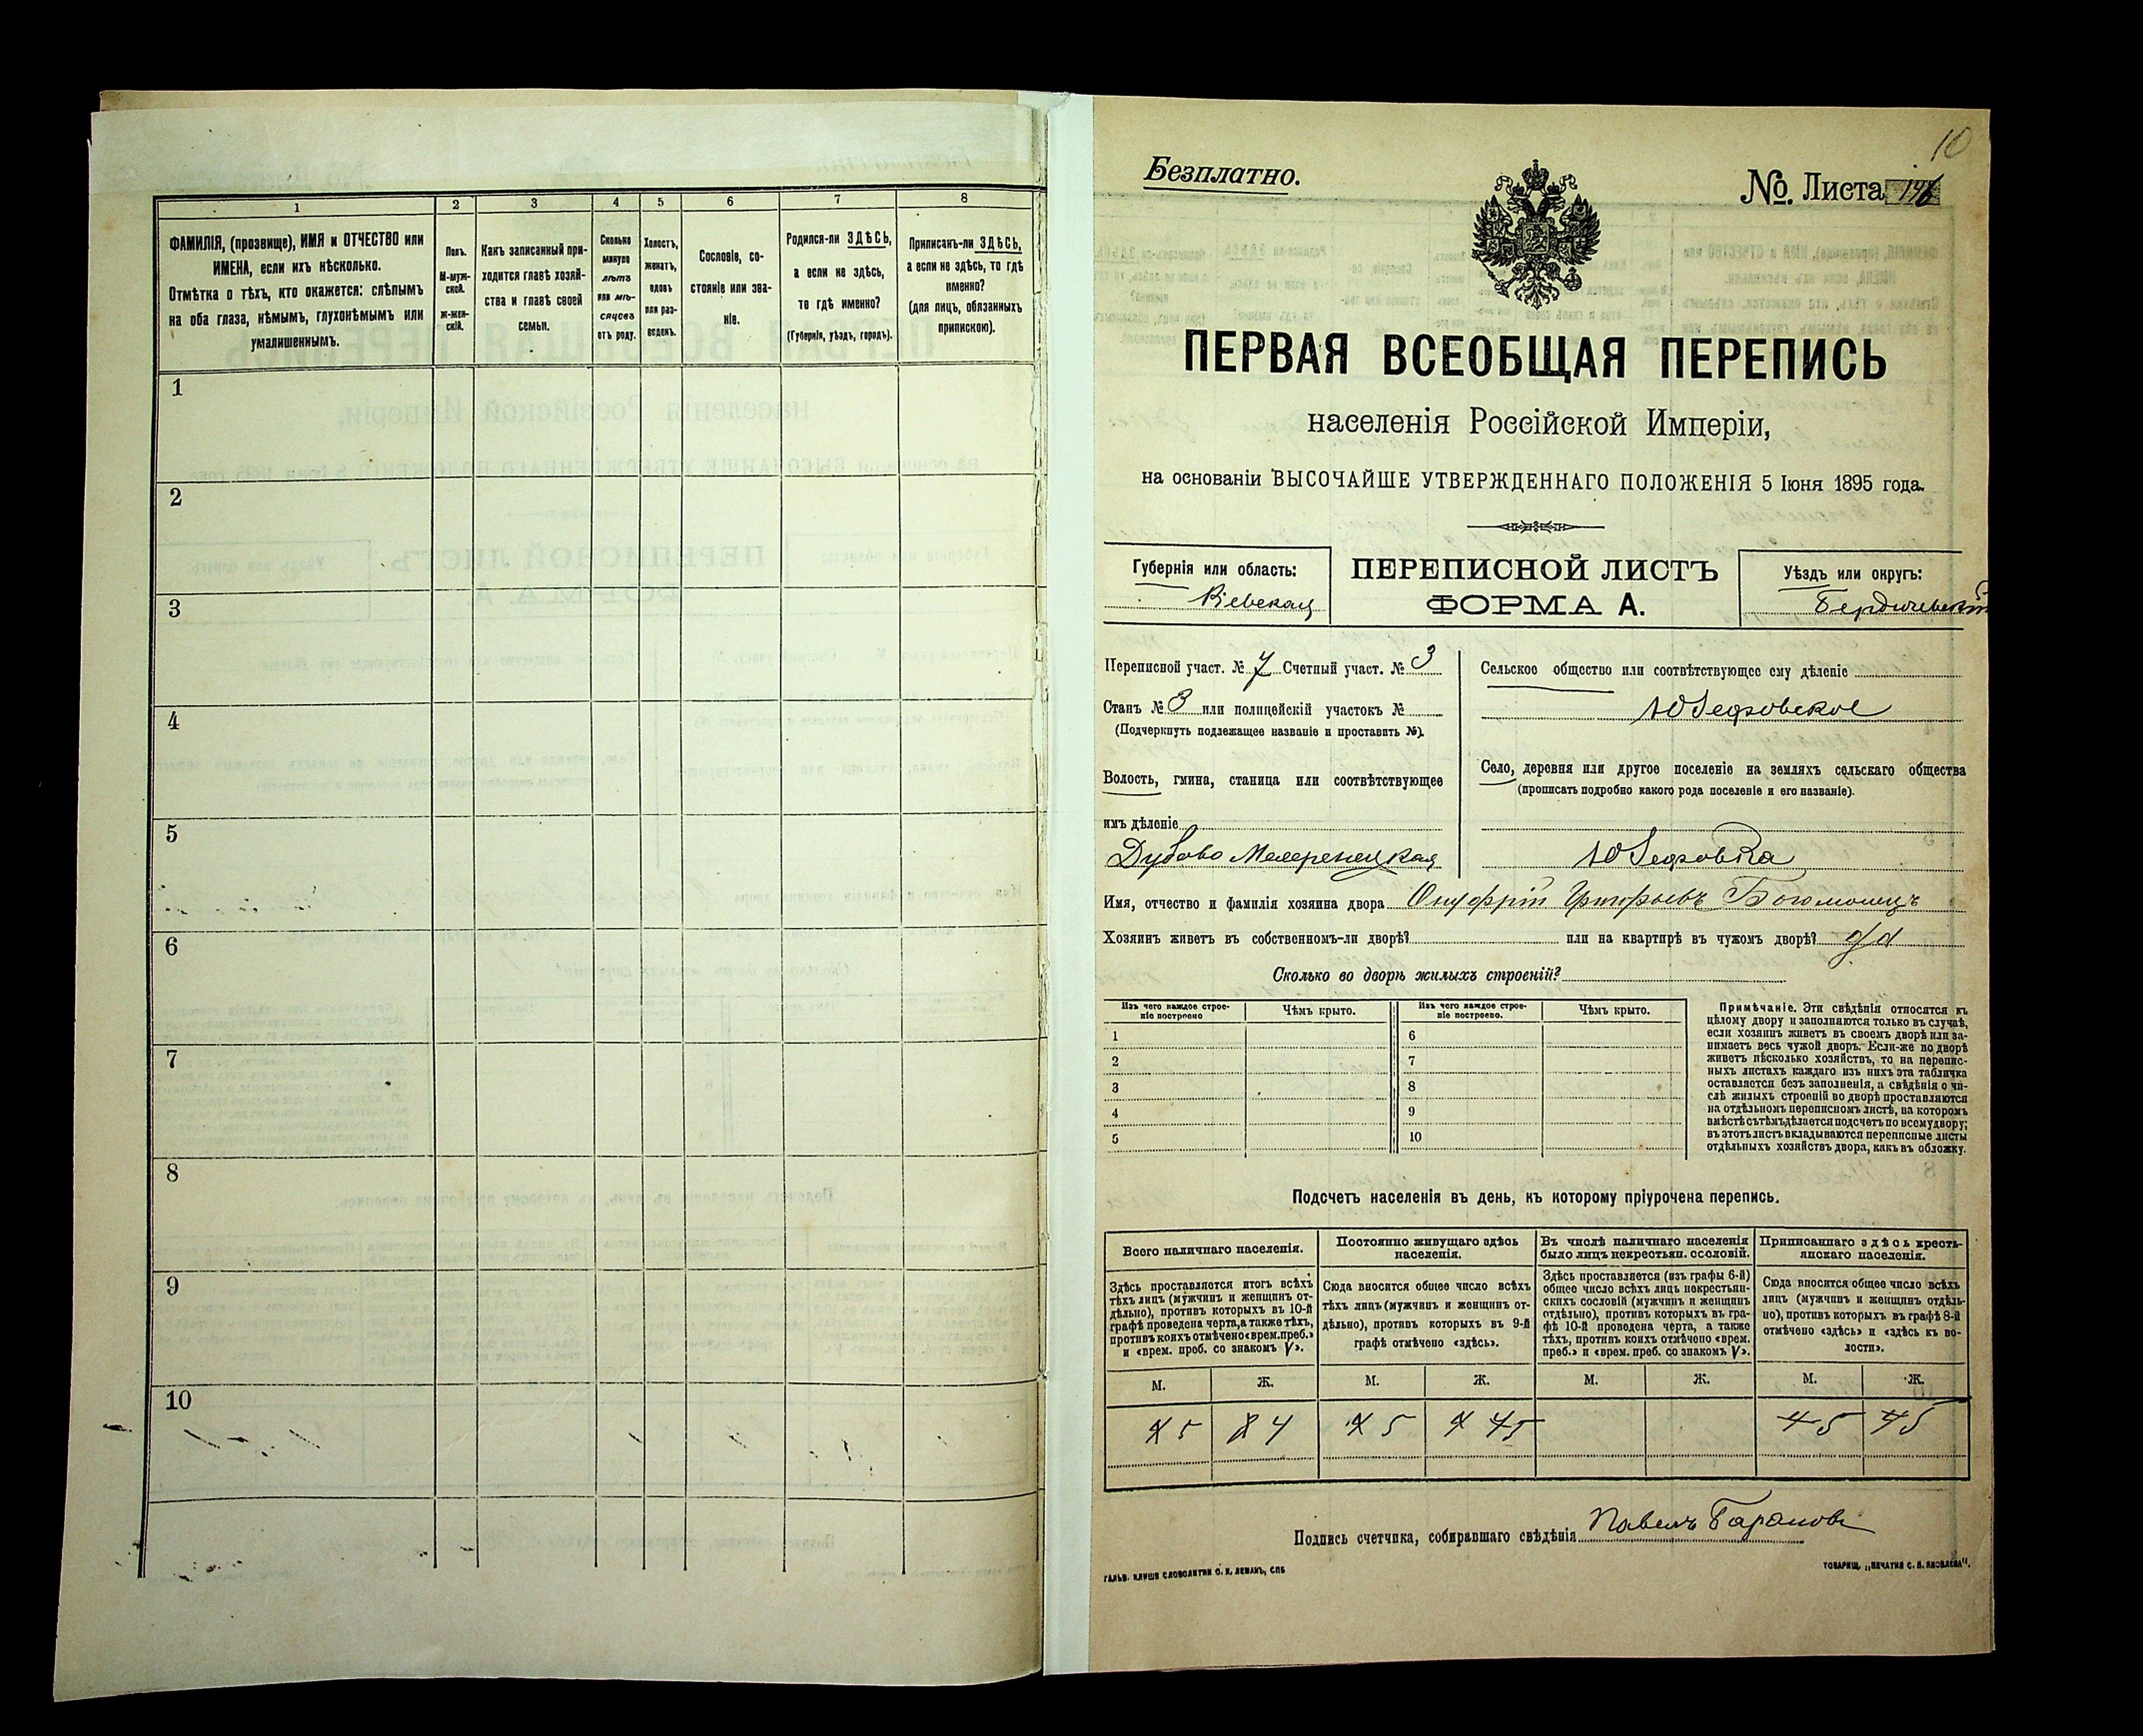 1 2 3 4 5 6 7 8
ФАМИЛІЯ, (прозвище), ИМЯ и ОТЧЕСТВО или
ИМЕНА, если ихъ нѣсколько.
Отмѣтка о тѣхъ, кто окажется: слѣпымъ
на оба глаза, нѣмымъ, глухонѣмымъ или
умалишеннымъ.
Полъ.
М-муж-
ской.
ж-жен-
скій.
Какъ записанный при-
ходится главѣ хозяй-
ства и главѣ своей
семьи.
Сколько
минуло
лѣтъ
или мѣ-
сяцевъ
отъ роду.
Холостъ,
женатъ,
вдовъ
или раз-
веденъ.
Сословіе, со-
стояніе или зва-
ніе.
Родился-ли ЗДѢСЬ,
а если не здѣсь,
то гдѣ именно?
(Губернія, уѣздъ, городъ).
Приписанъ-ли ЗДѢСЬ,
а если не здѣсь, то гдѣ
именно?
(для лицъ, обязанныхъ
припискою).
1
2
3
4
5
6
7
8
9
10
10
Безплатно.
№. Листа 146
ПЕРВАЯ ВСЕОБЩАЯ ПЕРЕПИСЬ
населенія Россійской Имперіи,
на основаніи ВЫСОЧАЙШЕ УТВЕРЖДЕННАГО ПОЛОЖЕНІЯ 5 Іюня 1895 года.
Губернія или область:
Кіевская
ПЕРЕПИСНОЙ ЛИСТЪ
ФОРМА А.
Уѣздъ или округъ:
Бердичевскій
Переписной участ. № 7 Счетный участ. № 3
Станъ № 3 или полицейскій участокъ №
(Подчеркнуть подлежащее названіе и проставить №).
Волость, гмина, станица или соотвѣтствующее
имъ дѣленіе
Дубово Мехеренецкая
Сельское общество или соотвѣтствующее ему дѣленіе
Юзефовское
Село, деревня или другое поселеніе на земляхъ сельскаго общества
(прописать подробно какого рода поселеніе и его названіе).
Юзефовка
Имя, отчество и фамилія хозяина двора Онуфрій
Хозяинъ живетъ въ собственномъ-ли дворѣ? или на квартирѣ въ чужомъ дворѣ?
Сколько во дворѣ жилыхъ строеній?
Изъ чего каждое строе-
ніе построено
Чѣмъ крыто.
Изъ чего каждое строе-
ніе построено.
Чѣмъ крыто.
1 6
2 7
3 8
4 9
5 10
Примѣчаніе. Эти свѣдѣнія относятся къ
цѣлому двору и заполняются только въ случаѣ,
если хозяинъ живетъ въ своемъ дворѣ или за-
нимаетъ весь чужой дворъ. Если-же во дворѣ
живетъ нѣсколько хозяйствъ, то на перепис-
ныхъ листахъ каждаго изъ нихъ эта табличка
оставляется безъ заполненія, а свѣдѣнія о чи-
слѣ жилыхъ строеній во дворѣ проставляются
на отдѣльномъ переписномъ листѣ, на которомъ
вмѣстѣ съ тѣмъ дѣлается подсчетъ по всему двору;
въ этотъ листъ вкладываются переписные листы
отдѣльныхъ хозяйствъ двора, какъ въ обложку.
Подсчетъ населенія въ день, къ которому пріурочена перепись.
Всего наличнаго населенія.
Здѣсь проставляется итогъ всѣхъ
тѣхъ лицъ (мужчинъ и женщинъ от-
дѣльно), противъ которыхъ въ 10-й
графѣ проведена черта, а также тѣхъ,
противъ коихъ отмѣчено «врем. преб.»
и «врем. преб. со знакомъ V».
Постоянно живущаго здѣсь
населенія.
Сюда вносится общее число всѣхъ
тѣхъ лицъ (мужчинъ и женщинъ от-
дѣльно), противъ которыхъ въ 9-й
графѣ отмѣчено «здѣсь».
Въ числѣ наличнаго населенія
было лицъ некрестьян. сословій.
Здѣсь проставляется (изъ графы 6-й)
общее число всѣхъ лицъ некрестьян-
скихъ сословій (мужчинъ и женщинъ
отдѣльно), противъ которыхъ въ гра-
фѣ 10-й проведена черта, а также
тѣхъ, противъ коихъ отмѣчено «врем.
преб.» и «врем. преб. со знакомъ V».
Приписаннаго здѣсь кресть-
янскаго населенія.
Сюда вносится общее число всѣхъ
лицъ (мужчинъ и женщинъ отдѣль-
но), противъ которыхъ въ графѣ 8-й
отмѣчено «здѣсь» и «здѣсь къ во-
лости».
М. Ж. М. Ж. М. Ж. М. Ж.
5 4 5 5 5 5
Подпись счетчика, собиравшаго свѣдѣнія Павелъ Барановъ
ГАЛЬВ. КЛИШЕ СЛОВОЛИТНИ О. И. ЛЕМАНЪ, СПБ
ТОВАРИЩ. „ПЕЧАТНЯ С. П. ЯКОВЛЕВА“.